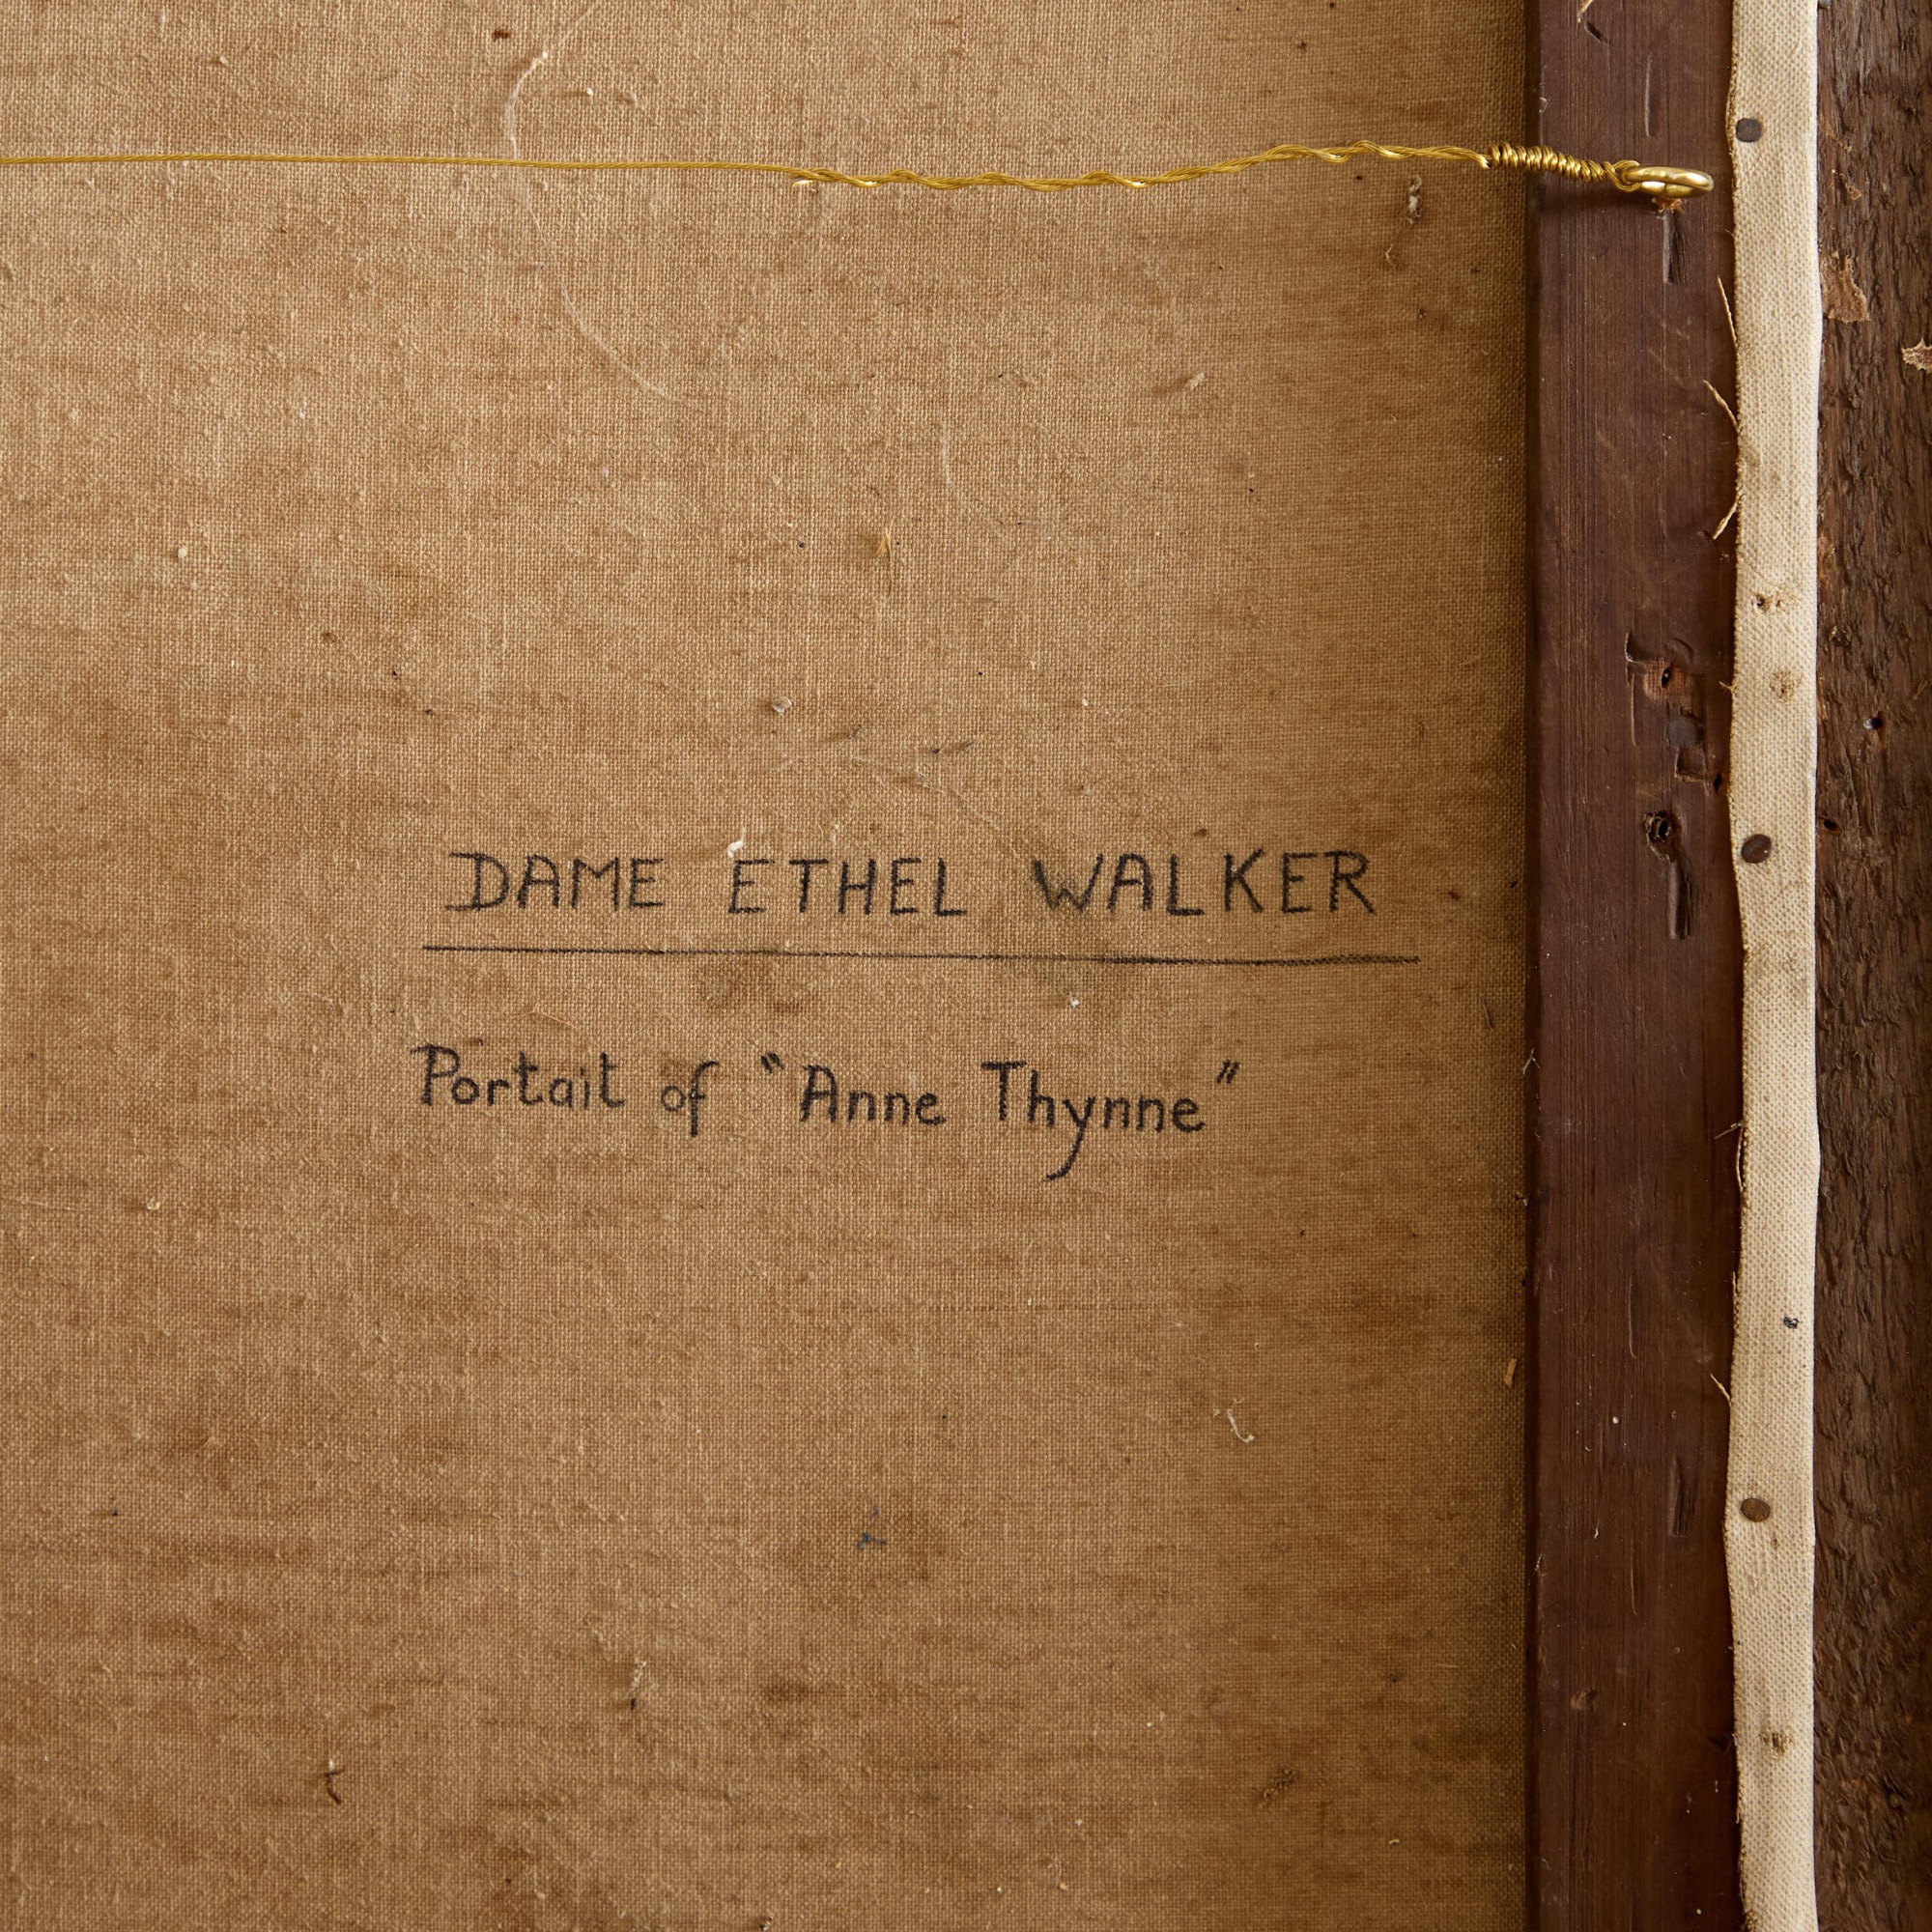 DAME ETHEL WALKER
Portait of "Anne Thynne"